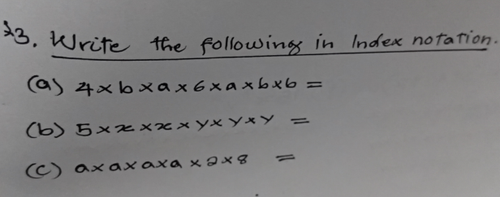 23. Write the following in Index notation.
(a) 4×b×a×6×a×b×b =
(b) 5×x×x×y×y×y =
(c) a×a×a×a×2×8 =